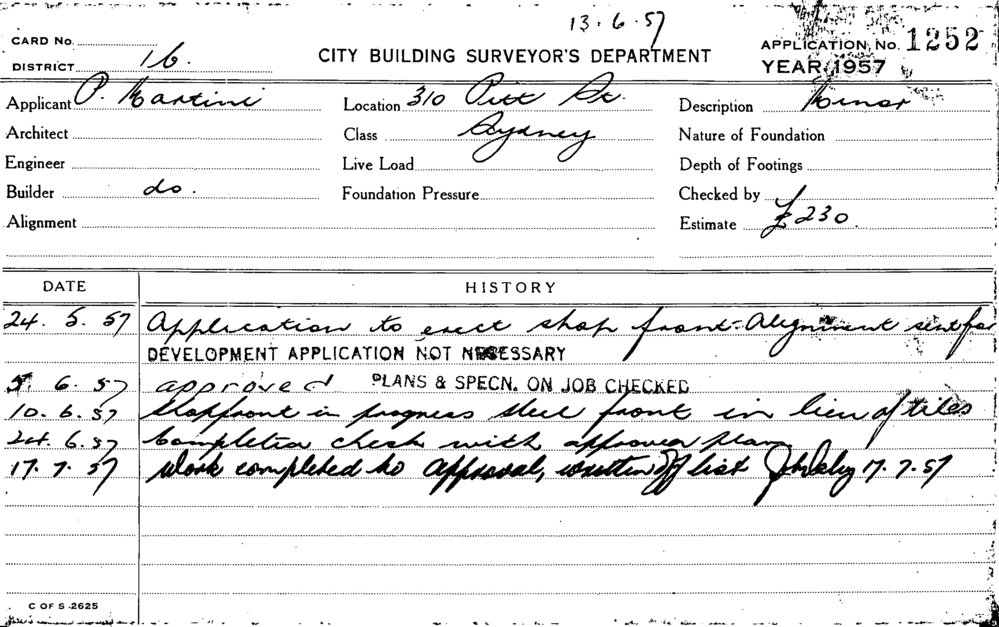 13.6.57
CARD No.
DISTRICT 16.
CITY BUILDING SURVEYOR'S DEPARTMENT
APPLICATION No. 1252
YEAR 1957
Applicant P. Martini
Location 310 Pitt St.
Description Minor
Architect
Class Sydney
Nature of Foundation
Engineer
Live Load
Depth of Footings
Builder do.
Foundation Pressure
Checked by
Alignment
Estimate £230.
DATE HISTORY
24. 5. 57 Application to erect shop front - Alignment sent for
DEVELOPMENT APPLICATION NOT NECESSARY
5. 6. 57 approved PLANS & SPECN. ON JOB CHECKED
10. 6. 57 Shopfront in progress steel front in lieu of tiles
24. 6. 57 Completion check with approved plan
17. 7. 57 Work completed to approval, written off list 17. 7. 57
C OF S 2625